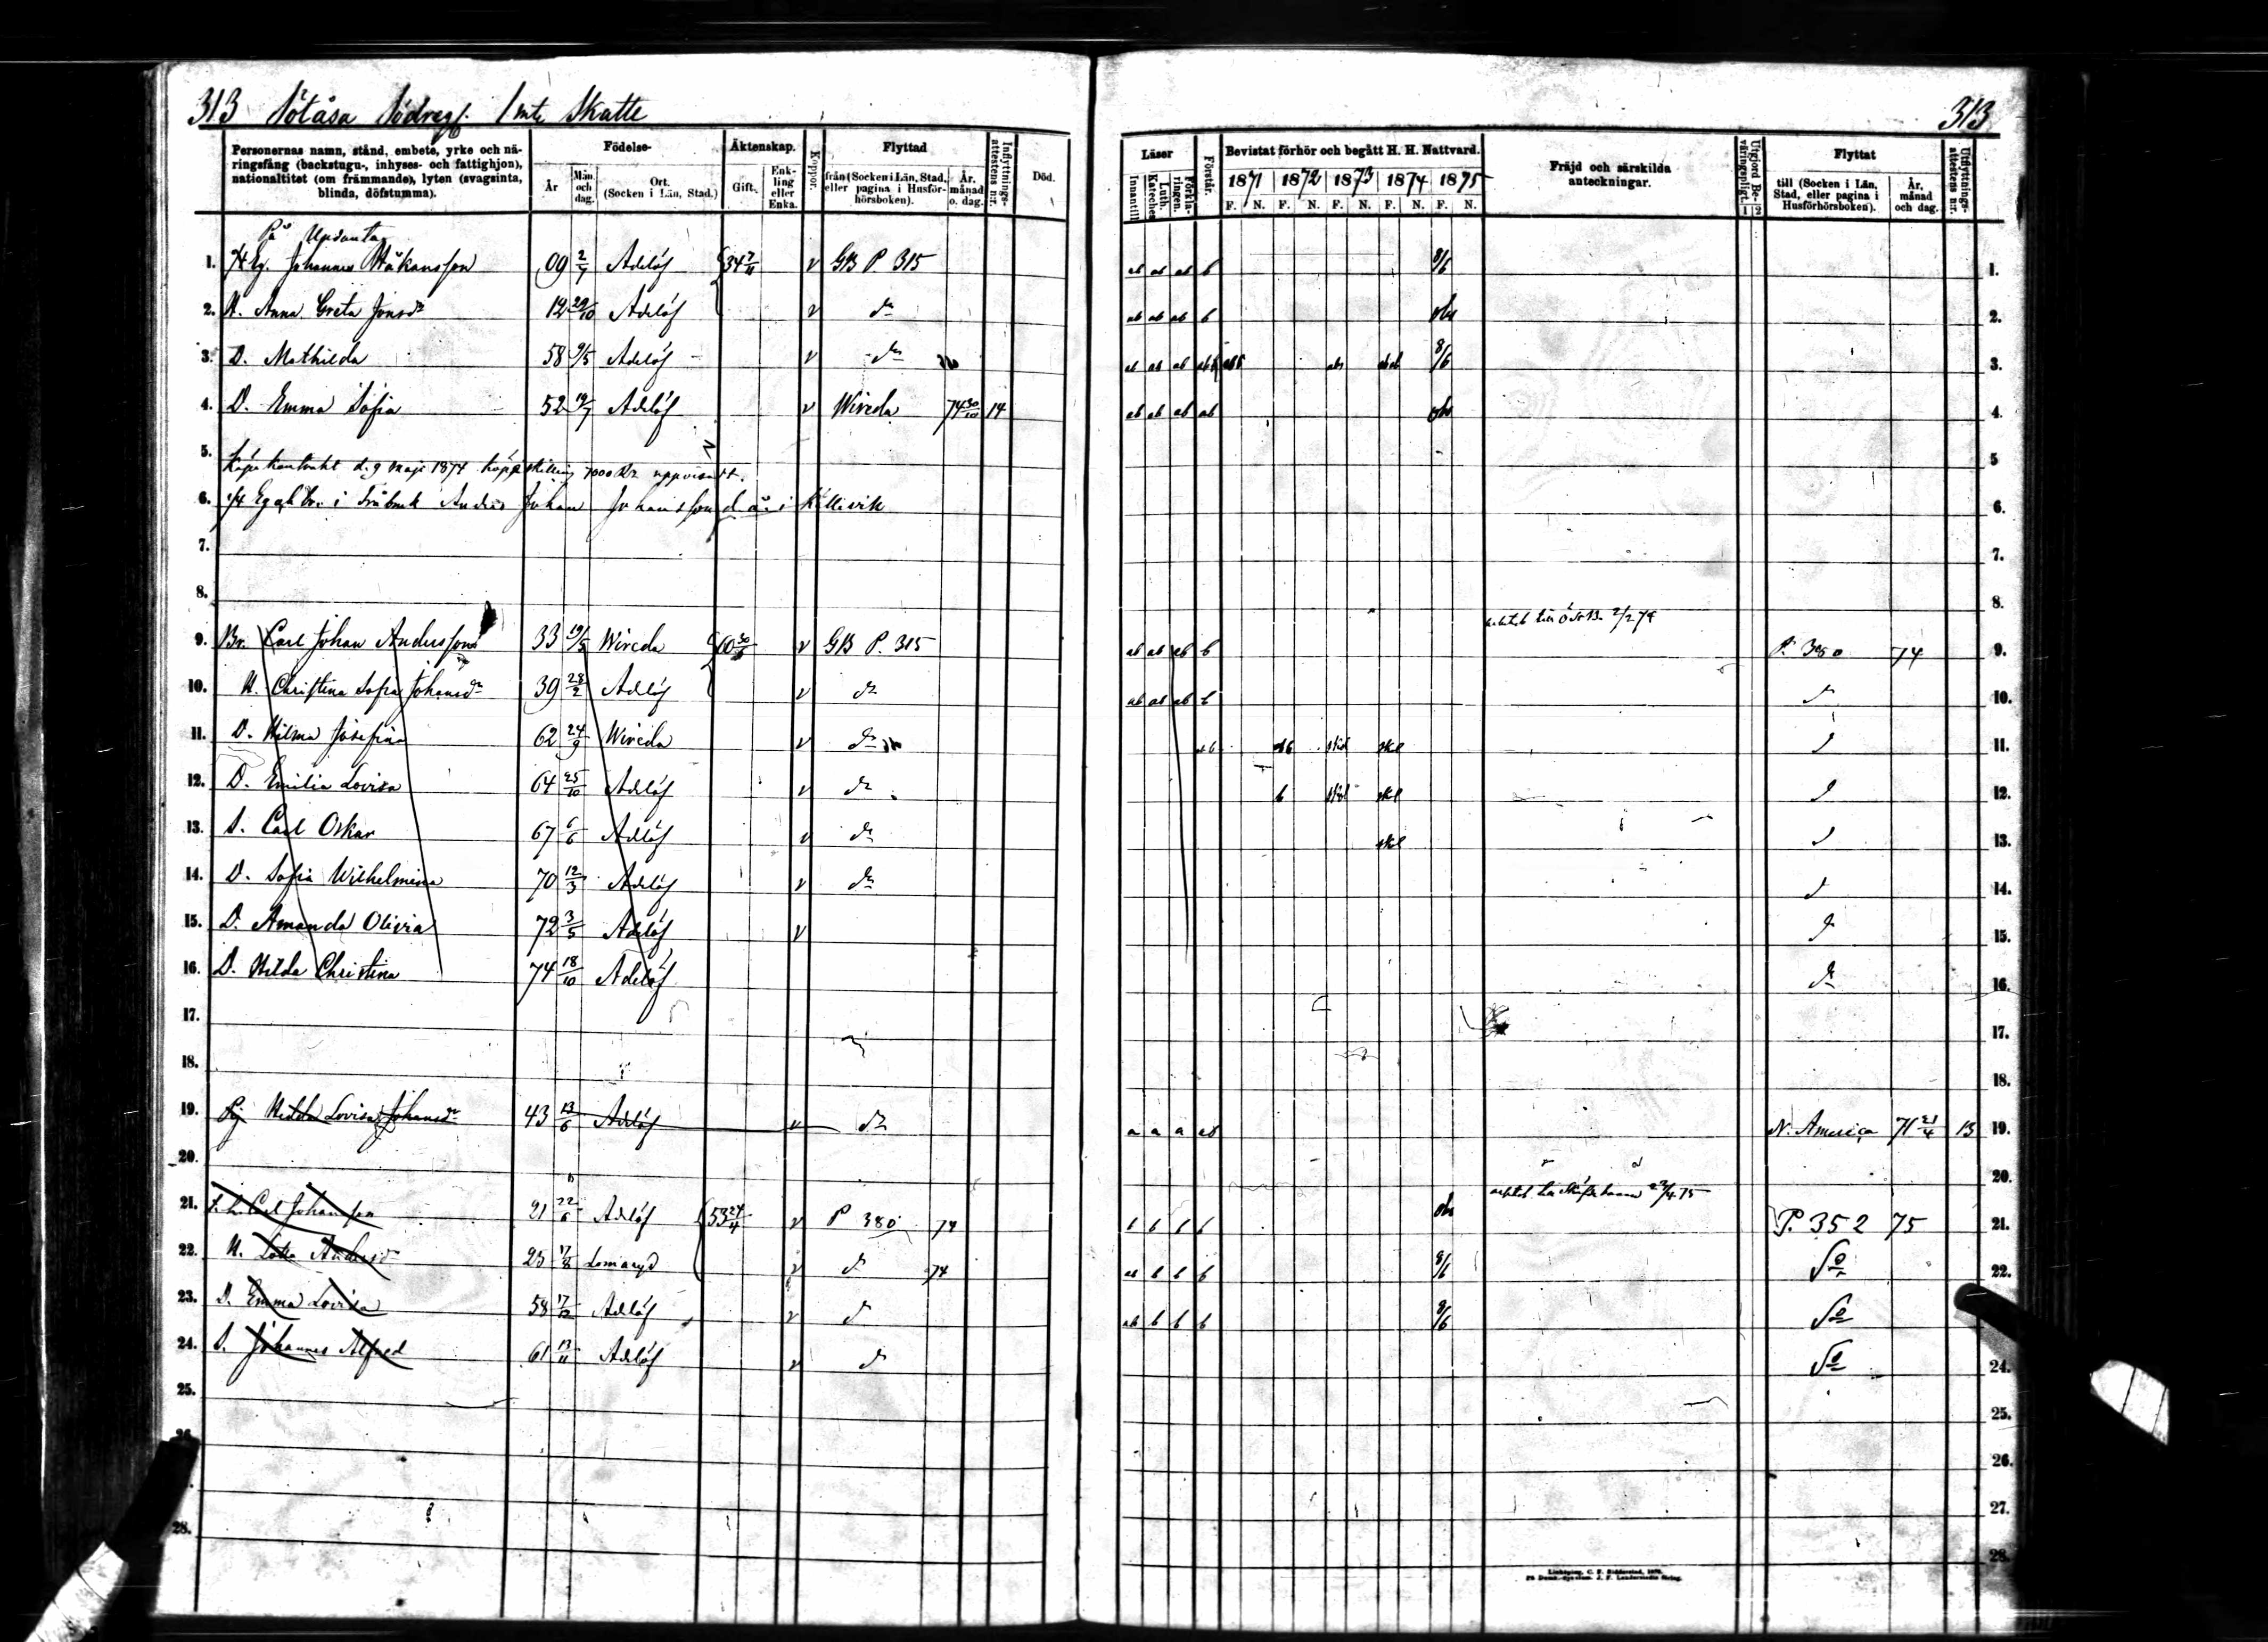 313 Sötåsa Södregd. 1 mtl Skatte
313
Personernas namn, stånd, embete, yrke och näringsfång (backstugu-, inhyses- och fattighjon), nationaltitet (om främmande), lyten (svagsinta, blinda, döfstumma).
Födelse-
År
Mån. och dag.
Ort. (Socken i Län, Stad.)
Äktenskap.
Gift.
Enkling eller Enka.
Koppor.
Flyttad
från (Socken i Län, Stad, eller pagina i Husförhörsboken).
År, månad o. dag.
Inflyttningsattestens n:r.
Död.
Läser
Innantill
Luth. Kateches
Förklaringen.
Förstår.
Bevistat förhör och begått H. H. Nattvard.
1871 1872 1873 1874 1875
F. N. F. N. F. N. F. N. F. N.
Fräjd och särskilda anteckningar.
Utgjord Beväringspligt.
1 2
Flyttat
till (Socken i Län, Stad, eller pagina i Husförhörsboken).
År, månad och dag.
Utflyttningsattestens n:r.
På Undantag
1. Eg. Johannes Håkansson 09 2/7 Adelöf 34 7/11 v GB P 315 ab ab ab b 8/6 1.
2. H. Anna Greta Jonsdr 12 29/10 Adelöf v do ab ab ab b 2.
3. D. Mathilda 58 9/5 Adelöf v do ab ab ab 8/6 3.
4. D. Emma Sofia 52 19/7 Adelöf v Wireda 74 30/10 14 ab ab ab ab 4.
5. Köpe kontrakt d. 9 maji 1874 köpeskilling 7000 Kr uppvisadt. 5
6. Eg. i Anders Johan Johansson d.ä. i Källevik 6.
7. 7.
8. 8.
9. Br. Carl Johan Andersson 33 19/5 Wireda 60 v GB P. 315 ab ab ab b P. 380 74 9.
10. H. Christina Sofia Johansdr 39 28/2 Adelöf v do ab ab ab b do 10.
11. D. Hilma Josefina 62 24/9 Wireda v do ab 11.
12. D. Emilia Lovisa 64 25/10 Adelöf v do b 12.
13. S. Carl Oskar 67 6/6 Adelöf v do 13.
14. D. Sofia Wilhelmina 70 12/3 Adelöf v do 14.
15. D. Amanda Olivia 72 3/5 Adelöf v do 15.
16. D. Hilda Christina 74 18/10 Adelöf do 16.
17. 17.
18. 18.
19. Pig Hedda Lovisa Johansdr 43 13/6 Adelöf v do a a a ab N. America 71 21/4 13 19.
20. 20.
21. Carl Johansson 21 22/6 Adelöf 53 24/4 v P 380 74 b b b b P. 352 75 21.
22. H. Lotta Andersdr 25 17/8 Lomaryd v do 74 ab b b b 8/6 do 22.
23. D. Emma Lovisa 58 17/12 Adelöf v do ab b b b 8/6 do 23.
24. S. Johannes Alfred 61 13/11 Adelöf v do do 24.
25. 25.
26. 26.
27.
28. 28.